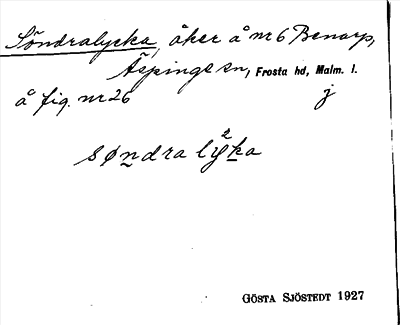 Söndralycka, åker å nr 6 Benarp,
Äspinge sn, Frosta hd, Malm. l.
å fig. nr 26 j
søndra lỳ²ka
GÖSTA SJÖSTEDT 1927